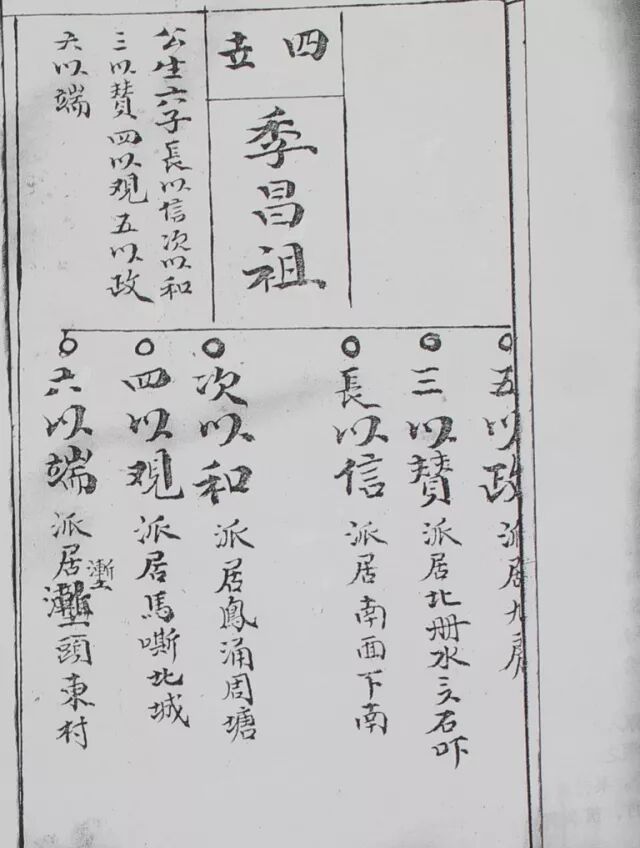 四世
季昌祖
公生六子長以信次以和
三以賛四以观五以政
六以端
五以政 派居九房
三以賛 派居北册水头石吓
長以信 派居南面下南
次以和 派居鳳涌周塘
四以观 派居馬嘶北城
六以端 派居頭東村